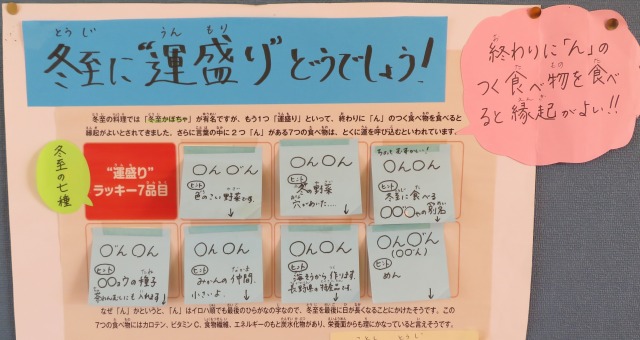 冬至に"運盛り"どうでしょう!
とうじ うん もり
終わりに「ん」の
つく食べ物を食べ
ると縁起がよい!!
冬至の料理では「冬至かぼちゃ」が有名ですが、もう1つ「運盛り」といって、終わりに「ん」のつく食べ物を食べると
縁起がよいとされてきました。さらに言葉の中に2つ「ん」がある7つの食べ物は、とくに運を呼び込むといわれています。
冬至の七種
"運盛り"
ラッキー7品目
〇ん〇ん
ヒント
色のこい野菜です。
↓
〇ん〇ん
ヒント
冬の野菜
穴があいた....
↓
ちょっとむずかしい!
〇ん〇ん
ヒント
冬至に食べる
〇〇〇ゃの別名
↓
〇ん〇ん
ヒント
〇〇ョウの種子
茶わんむしにも入れます
↓
〇ん〇ん
ヒント
みかんの仲間
小さいよ。
↓
〇ん〇ん
ヒント
海そうから作ります。
長野県の特産品です。
↓
〇ん〇ん
(〇〇ん)
ヒント
めん
なぜ「ん」かというと、「ん」はイロハ順でも最後のひらがなの字なので、冬至を最後に日が長くなることにかけたそうです。この
7つの食べ物にはカロテン、ビタミンC、食物繊維、エネルギーのもと炭水化物があり、栄養面からも理にかなっていると言えそうです。